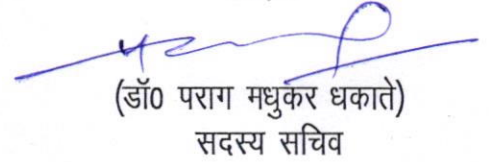 (डॉ0 पराग मधुकर धकाते)
सदस्य सचिव